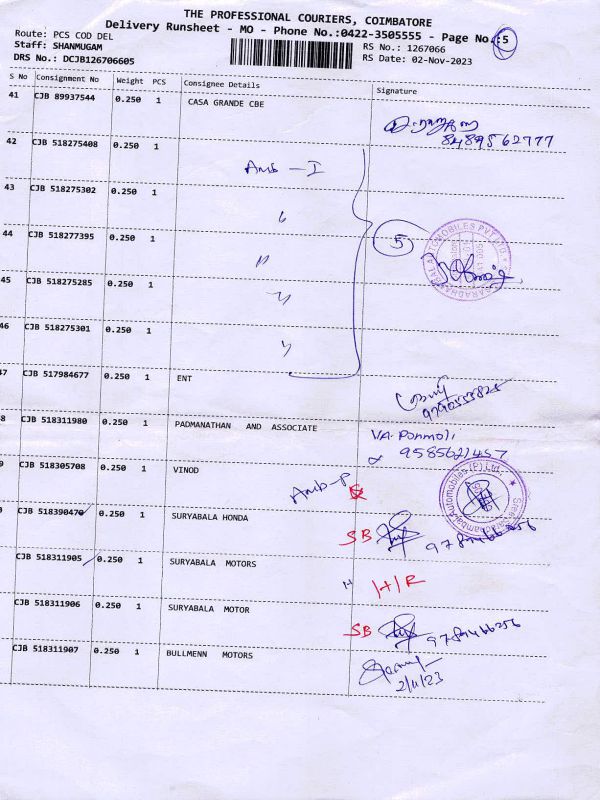 THE PROFESSIONAL COURIERS, COIMBATORE
Delivery Runsheet - MO - Phone No.:0422-3505555 - Page No.:5
Route: PCS COD DEL
Staff: SHANMUGAM
RS No.: 1267066
DRS No.: DCJB126706605
RS Date: 02-Nov-2023
S No Consignment No Weight PCS Consignee Details Signature
41 CJB 89937544 0.250 1 CASA GRANDE CBE
8489562777
42 CJB 518275408 0.250 1
Amb - I
43 CJB 518275302 0.250 1
44 CJB 518277395 0.250 1
5
45 CJB 518275285 0.250 1
46 CJB 518275301 0.250 1
47 CJB 517984677 0.250 1 ENT
8 CJB 518311980 0.250 1 PADMANATHAN AND ASSOCIATE
VA. Ponmoli
9585621457
9 CJB 518305708 0.250 1 VINOD
Amb-P
0 CJB 518390470 0.250 1 SURYABALA HONDA
SB
CJB 518311905 0.250 1 SURYABALA MOTORS
H/R
CJB 518311906 0.250 1 SURYABALA MOTOR
SB
CJB 518311907 0.250 1 BULLMENN MOTORS
2/11/23